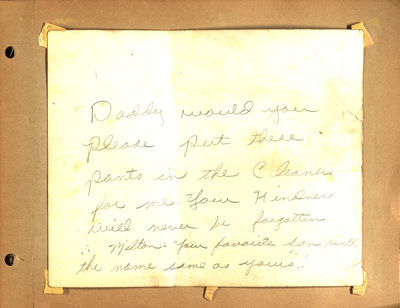 Daddy would you
please put these
pants in the Cleaners
for me Your Kindness
will never be forgotten
Milton: Your favorite son with
the name same as yours.